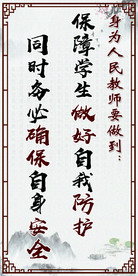 身为人民教师要做到：
保障学生做好自我防护
同时务必确保自身安全